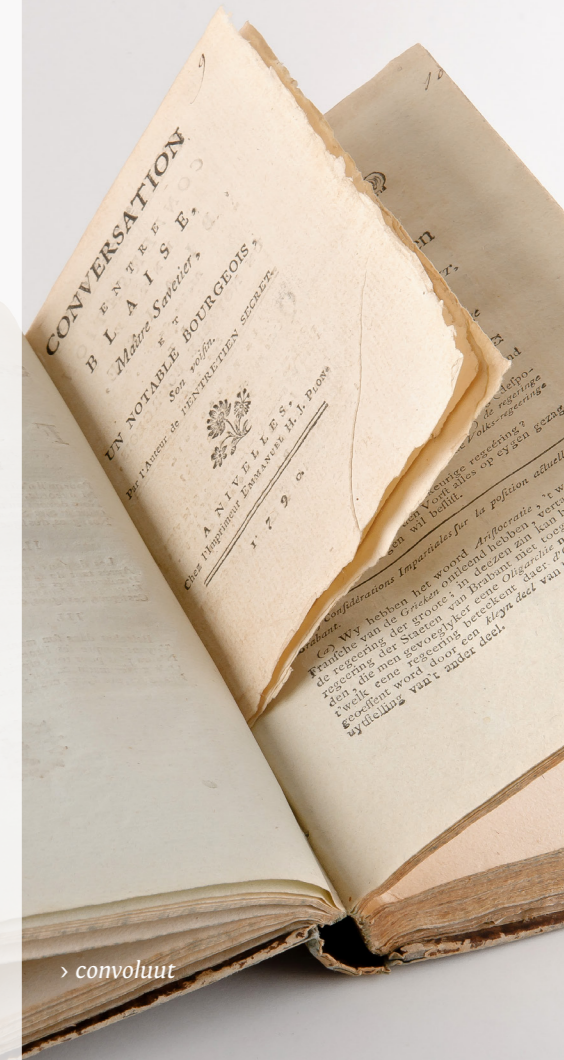 9
CONVERSATION
ENTRE
BLAISE,
Maître Savetier,
ET
UN NOTABLE BOURGEOIS,
Son voisin.
Par l'Auteur de l'ENTRETIEN SECRET.
A NIVELLES,
Chez l'Imprimeur EMMANUEL H. J. PION.
1790
10
en
keurige regeéring?
Vorst alles op eygen gezag
gen wil beslist.
Considérations Impartiales sur la position actuelle
Brabant.
(a) Wy hebben het woord Aristocratie, 't w
Fransche van de Grieken ontleend hebben, verta
de regeering der groote; in deezen zin kan
regeering der Staeten van Brabant niet
den, die men gevoeglyker eene Oligarchie
t'welk eene regeering beteekent daer
geoeffent word door een kleyn deel van
uytstelling van't ander deel.
› convoluut